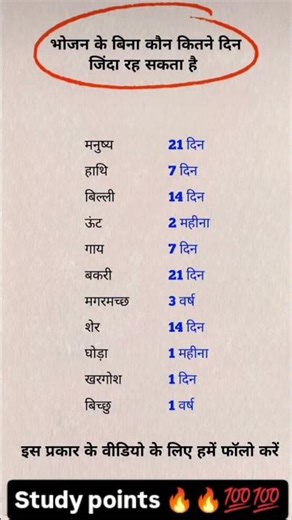 भोजन के बिना कौन कितने दिन
जिंदा रह सकता है
मनुष्य 21 दिन
हाथि 7 दिन
बिल्ली 14 दिन
ऊंट 2 महीना
गाय 7 दिन
बकरी 21 दिन
मगरमच्छ 3 वर्ष
शेर 14 दिन
घोड़ा 1 महीना
खरगोश 1 दिन
बिच्छु 1 वर्ष
इस प्रकार के वीडियो के लिए हमें फॉलो करें
Study points 🔥🔥💯💯